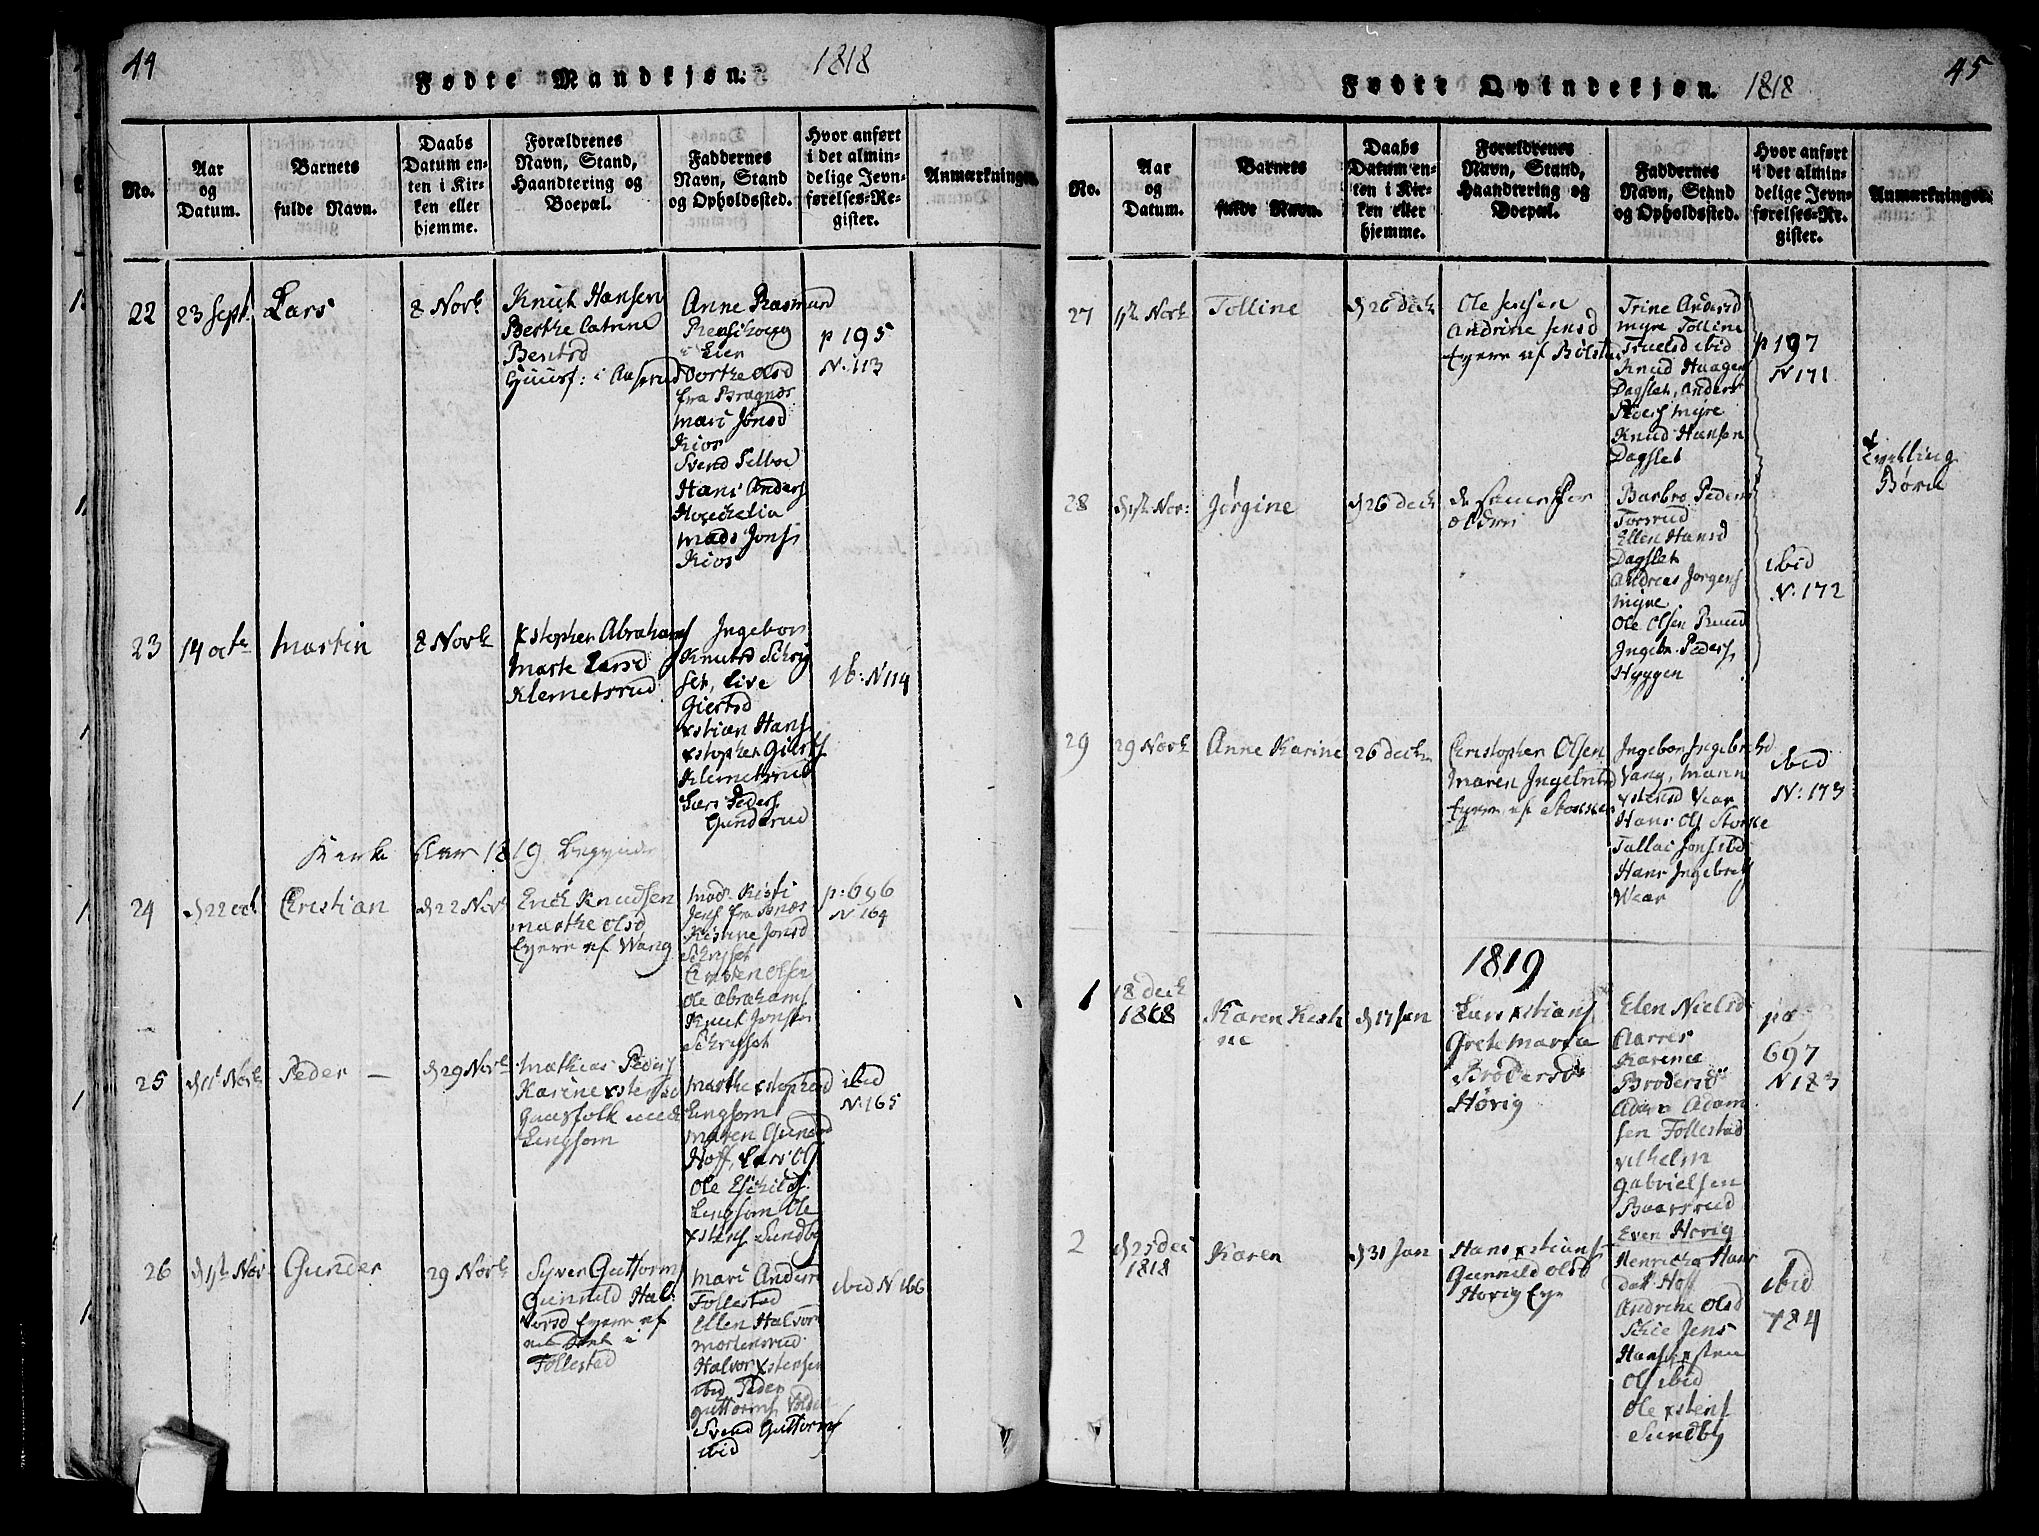 44
Fødte Mandkjøn.
1818
No.
Aar
og
Datum.
Barnets
fulde Navn.
Daabs
Datum en-
ten i Kir-
ken eller
hjemme.
Forældrenes
Navn, Stand,
Haandtering og
Boepæl.
Faddernes
Navn, Stand
og Opholdssted.
Hvor anført
i det almin-
delige Jevn-
førelses-Re-
gister.
Anmærkninger.
22
23 Sept.
Lars
8 Novb
Knut Hansen
Berthe Catrine
Bentsd
Huusf: i Aaserud
Anne Rasmusd
i Eier
Dorthe Olsd
fra Bragnæs
Mari Jonsd
Kios
Svend Selboe
Hans Anders
Mads Jons
Kios
p 195
N. 113
23
14 octb
Martin
8 Novb
Xstopher Abrahams
Marte Larsd
Klemetsrud
Ingebor
Knutsd Schrig
set, Live
Giertsd
Xstian Hans
Xstopher Giers
Klemetsrud
Lars Peders
Gunderud
ib: N 114
Kirke Aar 1819 begynder
24
d 22 oct
Christian
d 22 Novb
Erich Knudsen
Marthe Olsd
Eyere af Wang
Mad. Kisti
Jens fra Isnæs
Kistine Jonsd
Schrisset
Christen Olsen
Ole Abrahams
Knut Jonsen
Schrisset
p: 696
N 164
25
d 11t Novb
Peder —
d 29 Novb
Mathias Peders
Karine Xstensd
Huusfolk med
Lingsom
Marthe Xstophersd
Lingsom
Maren Gundersd
Hoff, Lars Ols
Ole Eschilds
Lingsom Ole
Xstens Sundby
ibid
N. 165
26
Gunder
29 Novb
Syver Guttorms
Gunnild Hal-
vorsd Eyere af
en Deel i
Follestad
Mari Anders
Follestad
Ellen Halvor
Mortensrud
Halvor Xstensen
ibid Peder
Guttorms Volden
Svend Guttorms
ibid
ibid N 166
45
Fødte Qvindekjøn.
1818
No.
Aar
og
Datum.
Barnets
fulde Navn.
Daabs
Datum en-
ten i Kir-
ken eller
hjemme.
Forældrenes
Navn, Stand,
Haandtering og
Boepæl.
Faddernes
Navn, Stand
og Opholdssted.
Hvor anført
i det almin-
delige Jevn-
førelses-Re-
gister.
Anmærkninger.
27
Tolline
d 26 decb
Ole Jensen
Andrine Jensd
Eyere af Bølstad
Trine Andersd
Myre Tolline
Truelsd ibid
Knud Haagen
Dagslet, Anders
Peders Myre
Knud Hansen
Dagslet
p 197
N 171
Tvilling
Børn
28
Jørgine
d 26 decb
de samme For
ældre
Barbro Peders
Torsrud
Ellen Hansd
Dagslet
Andreas Jorgens
Myre
Ole Olsen Ruud
Ingebr. Peders
Hyggen
ibid
N: 172
29
29 Novb
Anne Karine
26 decb
Christopher Olsen
Maren Ingebretsd
Eyere af Storsten
Ingebor Ingebretsd
Vang, Maren
Ystensd Vear
Hans Ols Storste
Tallac Jons ibd
Hans Ingebrets
Wear
ibid
N: 173
1819
1
18 decb
1818
Karen Kisti
ne
d 17 Jan
Lars Xstians
Grete Maria
Brodersd
Hørig
Elen Nielsd
Aarres
Karenea
Brodersd
Adam Adam
sen Follestad
Vilhelm
Gabrielsen
Baarsrud
Even Hørig
pag
697
N 183
2
d 25 dec
1818
Karen
d 31 Jan
Hans Xstians
Gunnild Olsd
Hørig Eye
Henricha Hans
dat Hoff
Andrine Olsd
Schie Jens
Hans Xsten
Ols ibid
Ole Xstens
Sundby
ibid
184